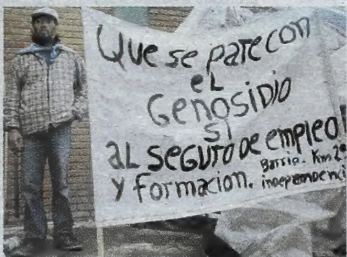 Que se pare con
el
Genosidio
si
al seguro de empleo!
y formacion. Barrio. Km 2
independenci